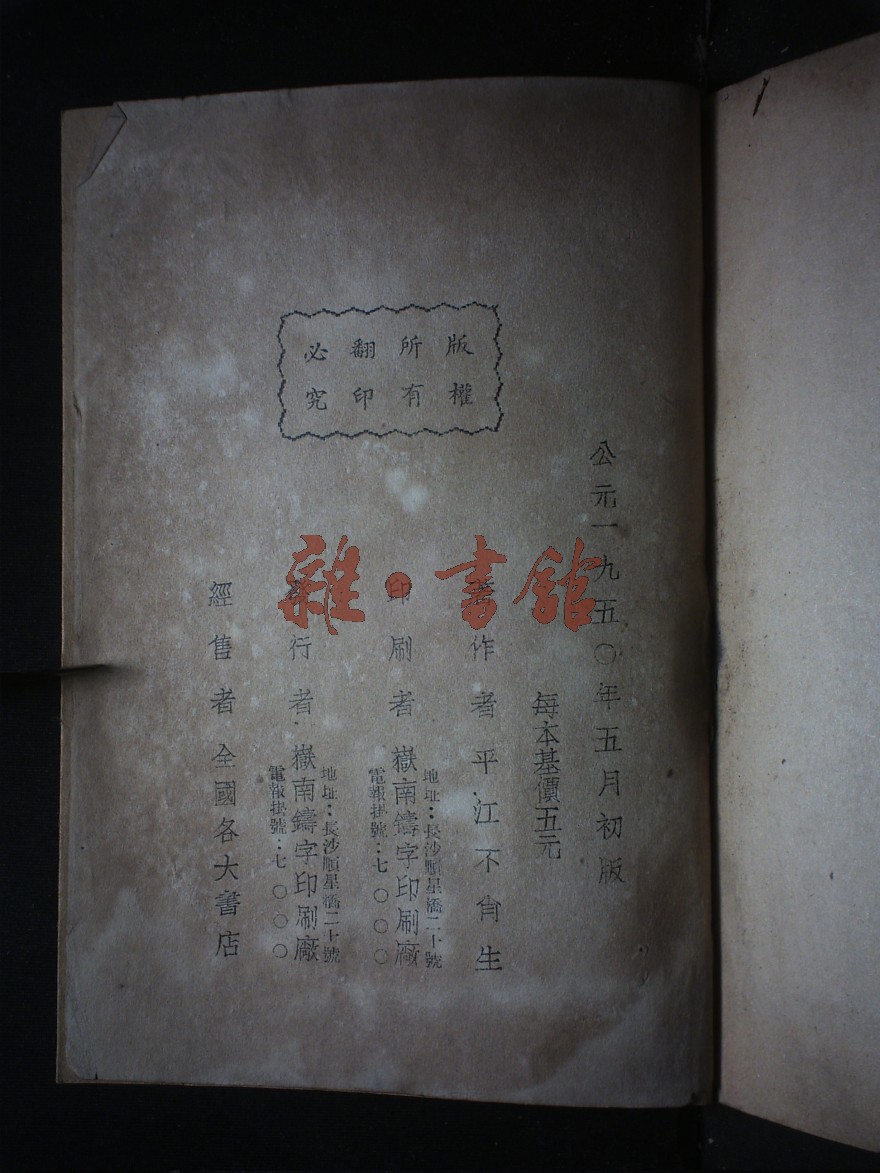 版權
所有
翻印
必究
公元一九五〇年五月初版
每本基價五元
著作者 平江不肖生
印刷者 嶽南鑄字印刷廠
地址：長沙順星橋二十號
電報掛號：七〇〇〇
行者 嶽南鑄字印刷廠
地址：長沙順星橋二十號
電報掛號：七〇〇〇
經售者 全國各大書店
雜·書館